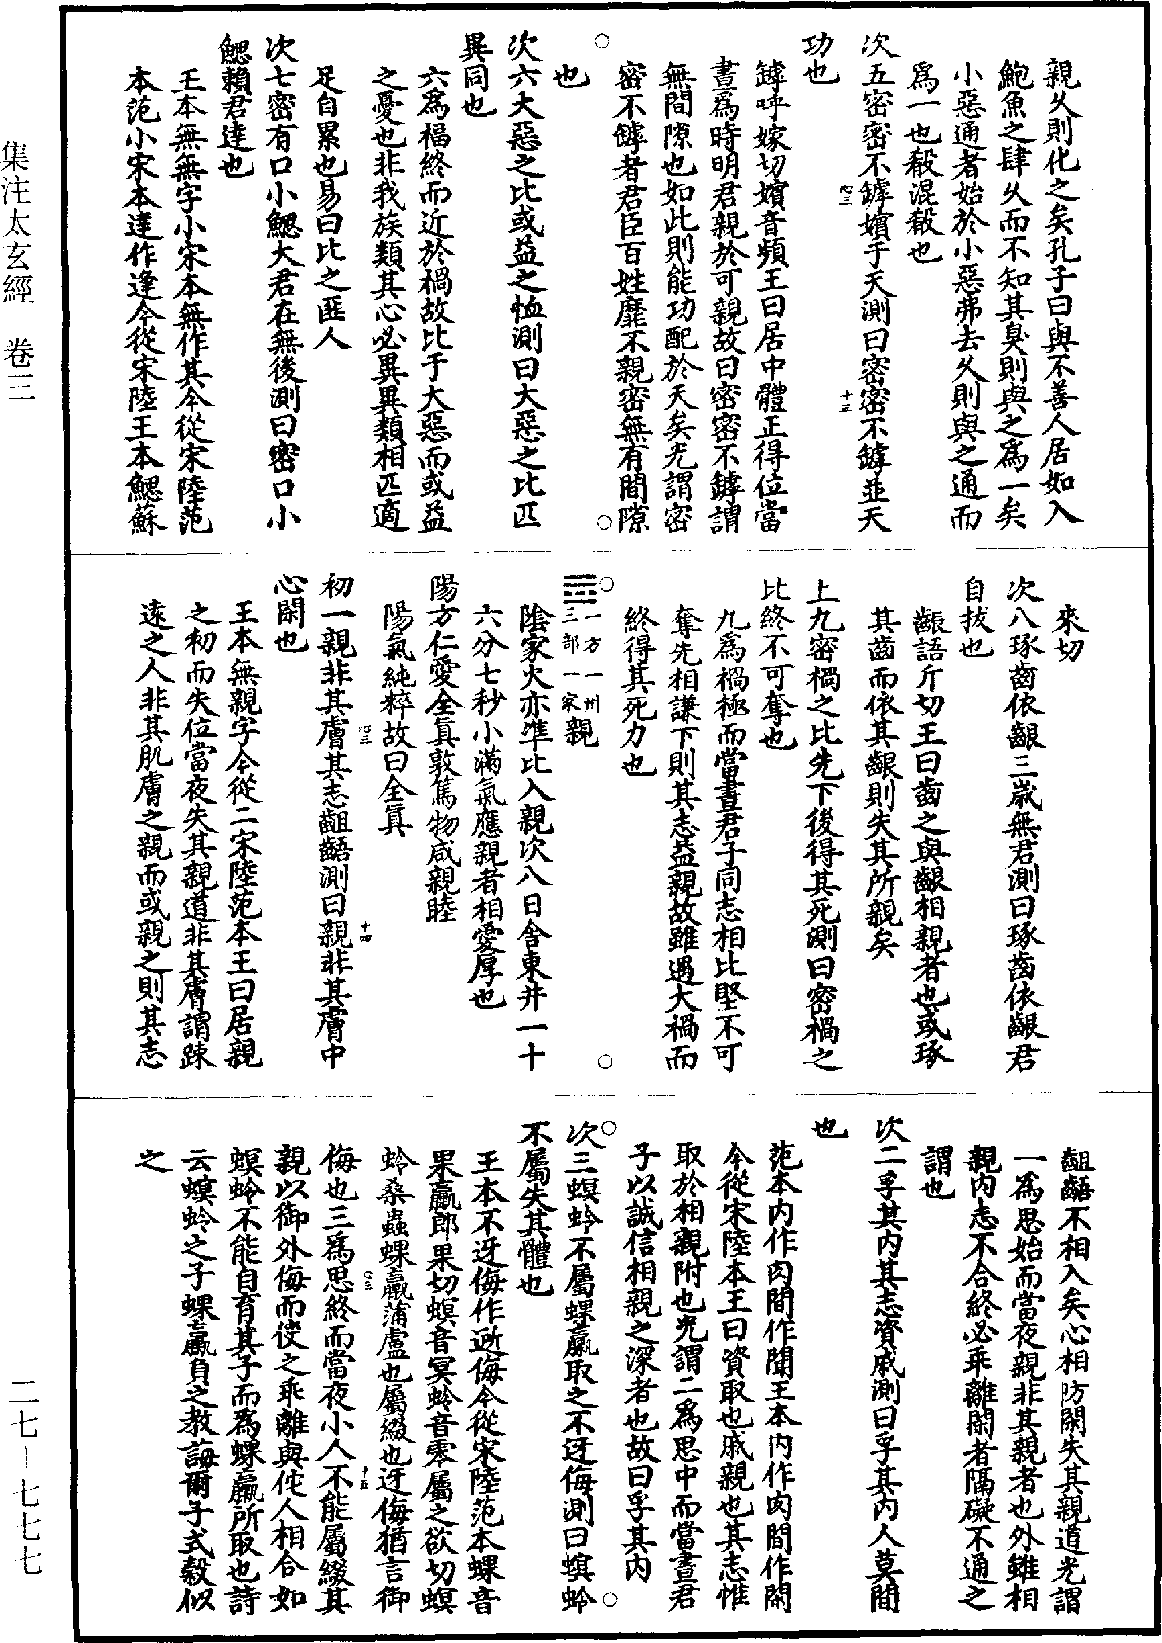 親久則化之矣孔子曰與不善人居如入
鮑魚之肆久而不知其臭則與之爲一矣
小惡通者始於小惡弗去久則與之通而
爲一也殽混殽也
次五密密不罅嬪于天測曰密密不罅並天
功也
罅呼嫁切嬪音頻王曰居中體正得位當
晝爲時明君親於可親故曰密密不罅謂
無間隙也如此則能功配於天矣光謂密
密不罅者君臣百姓靡不親密無有間隙
也
次六大惡之比或益之恤測曰大惡之比匹
異同也
六爲福終而近於禍故比于大惡而或益
之憂也非我族類其心必異異類相匹適
足自累也易曰比之匪人
次七密有口小鰓大君在無後測曰密口小
鰓賴君達也
王本無無字小宋本無作其今從宋陸范
本范小宋本達作逢今從宋陸王本鰓蘇
來切
次八琢齒依齦三歲無君測曰琢齒依齦君
自拔也
齦語斤切王曰齒之與齦相親者也或琢
其齒而依其齦則失其所親矣
上九密禍之比先下後得其死測曰密禍之
比終不可奪也
九爲禍極而當晝君子同志相比堅不可
奪先相謙下則其志益親故雖遇大禍而
終得其死力也
一方一州三部一家親
陰家火亦準比入親次八日舍東井一十
六分七秒小滿氣應親者相愛厚也
陽方仁愛全真敦篤物咸親睦
陽氣純粹故曰全真
初一親非其膚其志齟齬測曰親非其膚中
心閑也
王本無親字今從二宋陸范本王曰居親
之初而失位當夜失其親道非其膚謂踈
遠之人非其肌膚之親而或親之則其志
齟齬不相入矣心相防閑失其親道光謂
一爲思始而當夜親非其親者也外雖相
親內志不合終必乖離閑者隔礙不通之
謂也
次二孚其內其志資戚測曰孚其內人莫間
也
范本內作肉間作聞王本內作肉間作閑
今從宋陸本王曰資取也戚親也其志惟
取於相親附也光謂二爲思中而當晝君
子以誠信相親之深者也故曰孚其內
次三螟蛉不屬蜾蠃取之不迓侮測曰螟蛉
不屬失其體也
王本不迓侮作逝侮今從宋陸范本蜾音
果蠃郎果切螟音冥蛉音零屬之欲切螟
蛉桑蟲蜾蠃蒲盧也屬綴也迓侮猶言御
侮也三爲思終而當夜小人不能屬綴其
親以御外侮而使之乖離與佗人相合如
螟蛉不能自育其子而爲蜾蠃所取也詩
云螟蛉之子蜾蠃負之教誨爾子式穀似
之
集注太玄經 卷三
二七－七七七